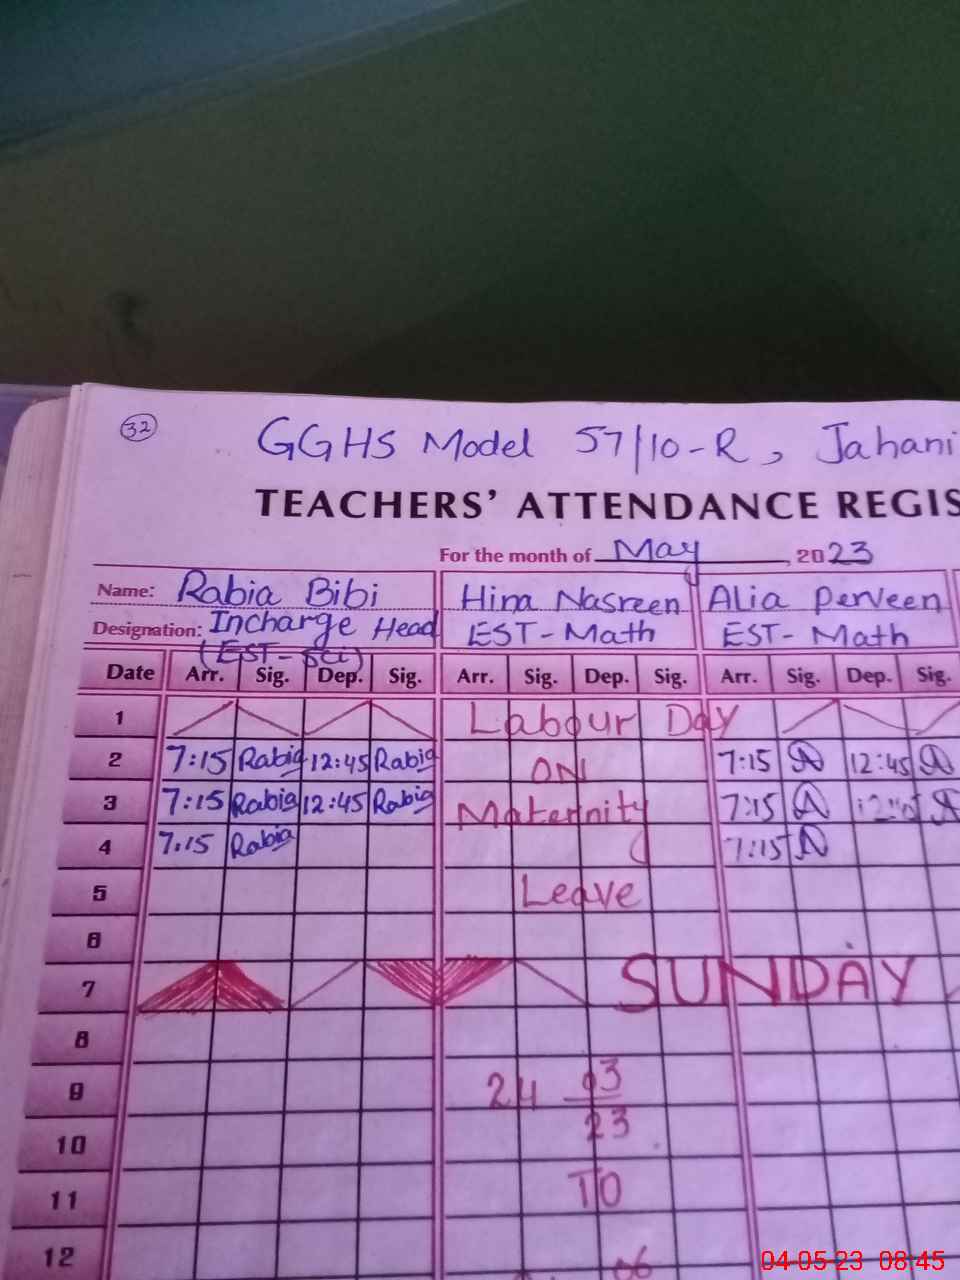 32
GGHS Model 57/10-R, Jahani
TEACHERS' ATTENDANCE REGIS
For the month of May, 2023
Name: Rabia Bibi Hira Nasreen Alia Perveen
Designation: Incharge Head EST-Math EST-Math
(EST-Sci)
Date Arr. Sig. Dep. Sig. Arr. Sig. Dep. Sig. Arr. Sig. Dep. Sig.
1 Labour Day
2 7:15 Rabia 12:45 Rabia ON 7:15 A 12:45 A
3 7:15 Rabia 12:45 Rabia Maternity 7:15 A A
4 7:15 Rabia 7:15 A
5 Leave
6
7 SUNDAY
8
9 24 03
23
10
11 TO
12
04-05-23 08:45